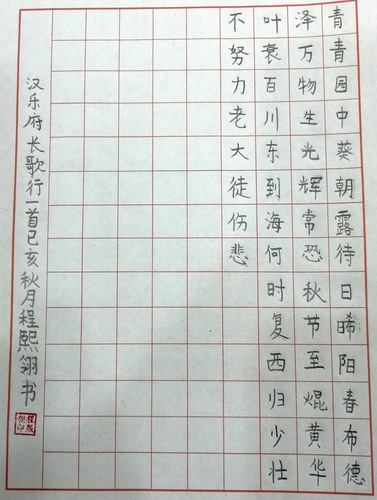 青青园中葵朝露待日晞阳春布德
泽万物生光辉常恐秋节至焜黄华
叶衰百川东到海何时复西归少壮
不努力老大徒伤悲
汉乐府长歌行一首己亥秋月程熙翎书